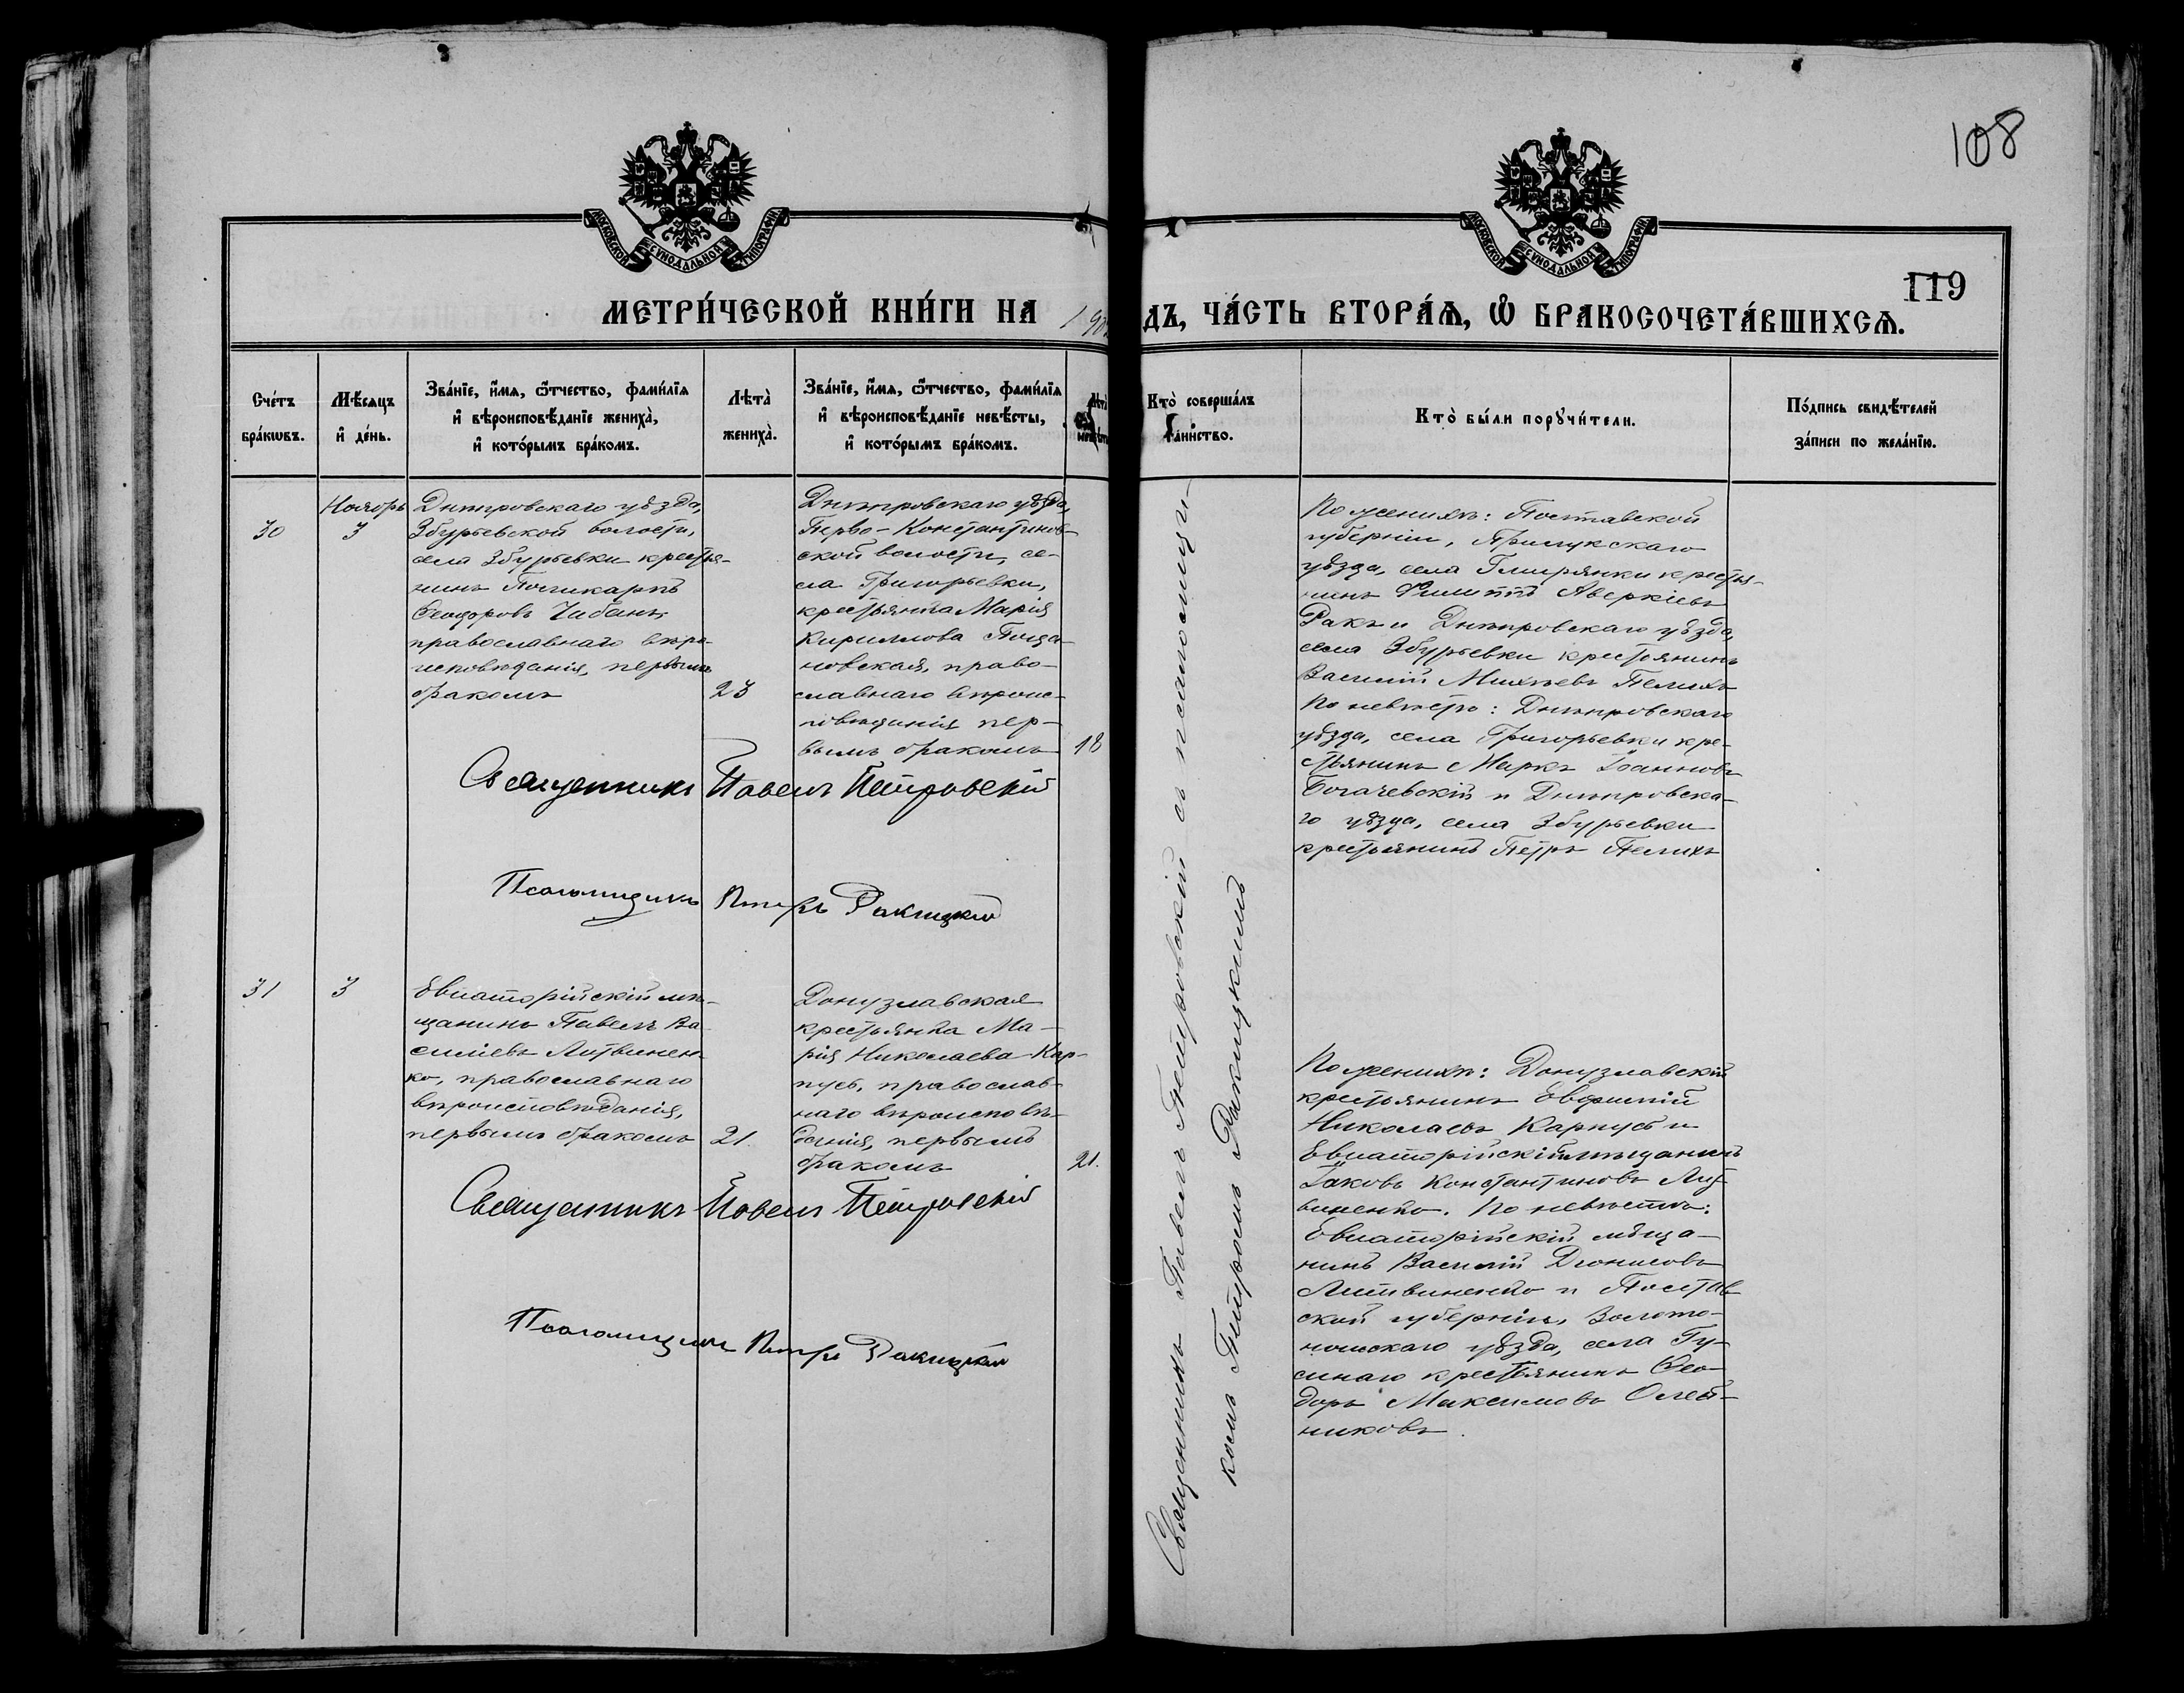 108
119
МОСКОВСКОЙ СѴНОДАЛЬНОЙ ТИПОГРАФІИ
МОСКОВСКОЙ СѴНОДАЛЬНОЙ ТИПОГРАФІИ
МЕТРИ́ЧЕСКОЙ КНИ́ГИ НА 190
ДЪ, ЧА́СТЬ ВТОРА́Ѧ, Ѽ БРАКОСОЧЕТА́ВШИХСѦ.
Сче́тъ
бра́кѡвъ.
Мѣ́сѧцъ
и҆ де́нь.
Зва́нїе, и҆́мѧ, ѻ҆́тчество, фамі́лїѧ
и҆ вѣроисповѣ́данїе жениха̀,
и҆ кото́рымъ бра́комъ.
Лѣта̀
жениха̀.
Зва́нїе, и҆́мѧ, ѻ҆́тчество, фамі́лїѧ
и҆ вѣроисповѣ́данїе невѣ́сты,
и҆ кото́рымъ бра́комъ.
Кто̀ соверша́лъ
та́инство.
Кто̀ бы́ли порꙋчи́тели.
По́дпись свидѣ́телей
за́писи по жела́нїю.
30
Ноябрь
3
Днѣпровскаго уѣзда,
Збурьевской волости,
села Збурьевки крестья-
нинъ Поликарпъ
Ѳеодоровъ Чабанъ,
православнаго вѣро-
исповѣданія, первымъ
бракомъ
23
Днѣпровскаго уѣзда,
Перво-Константинов-
ской волости, се-
ла Григорьевки,
крестьянка Марія
Кириллова
новская, право-
славнаго вѣроис-
повѣданія пер-
вымъ бракомъ
18
Священникъ Павелъ Петровскій
Псаломщикъ Петръ Ракицкій
По женихѣ: Полтавской
губерніи, Прилукскаго
уѣзда, села Гмирянки крестья-
нинъ Филиппъ Аверкіевъ
Ракъ и Днѣпровскаго уѣзда,
села Збурьевки крестьянинъ
Василій Михѣевъ Пелихъ
По невѣстѣ: Днѣпровскаго
уѣзда, села Григорьевки кре-
стьянинъ Маркъ Іоанновъ
Богачевскій и Днѣпровска-
го уѣзда, села Збурьевки
крестьянинъ Петръ Пелихъ
31
3
Евпаторійскій мѣ-
щанинъ Павелъ Ва-
силіевъ Литвинен-
ко, православнаго
вѣроисповѣданія,
первымъ бракомъ
21.
Донузлавская
крестьянка Ма-
рія Николаева Кар-
пусь, православ-
наго вѣроисповѣ-
данія, первымъ
бракомъ
21.
Священникъ Павелъ Петровскій
Псаломщикъ Петръ Ракицкій
По женихѣ: Донузлавскій
крестьянинъ Евфимій
Николаевъ Карпусь и
Евпаторійскій мѣщанинъ
Іаковъ Константиновъ Лит-
виненко. По невѣстѣ:
Евпаторійскій мѣща-
нинъ Василій Діонисовъ
Литвиненко и Полтав-
ской губерніи, Золото-
ношскаго уѣзда, села Гу-
синаго крестьянинъ Ѳео-
доръ Максимовъ Олей-
никовъ.
Священникъ Павелъ Петровскій съ псаломщи-
комъ Петромъ Ракицкимъ